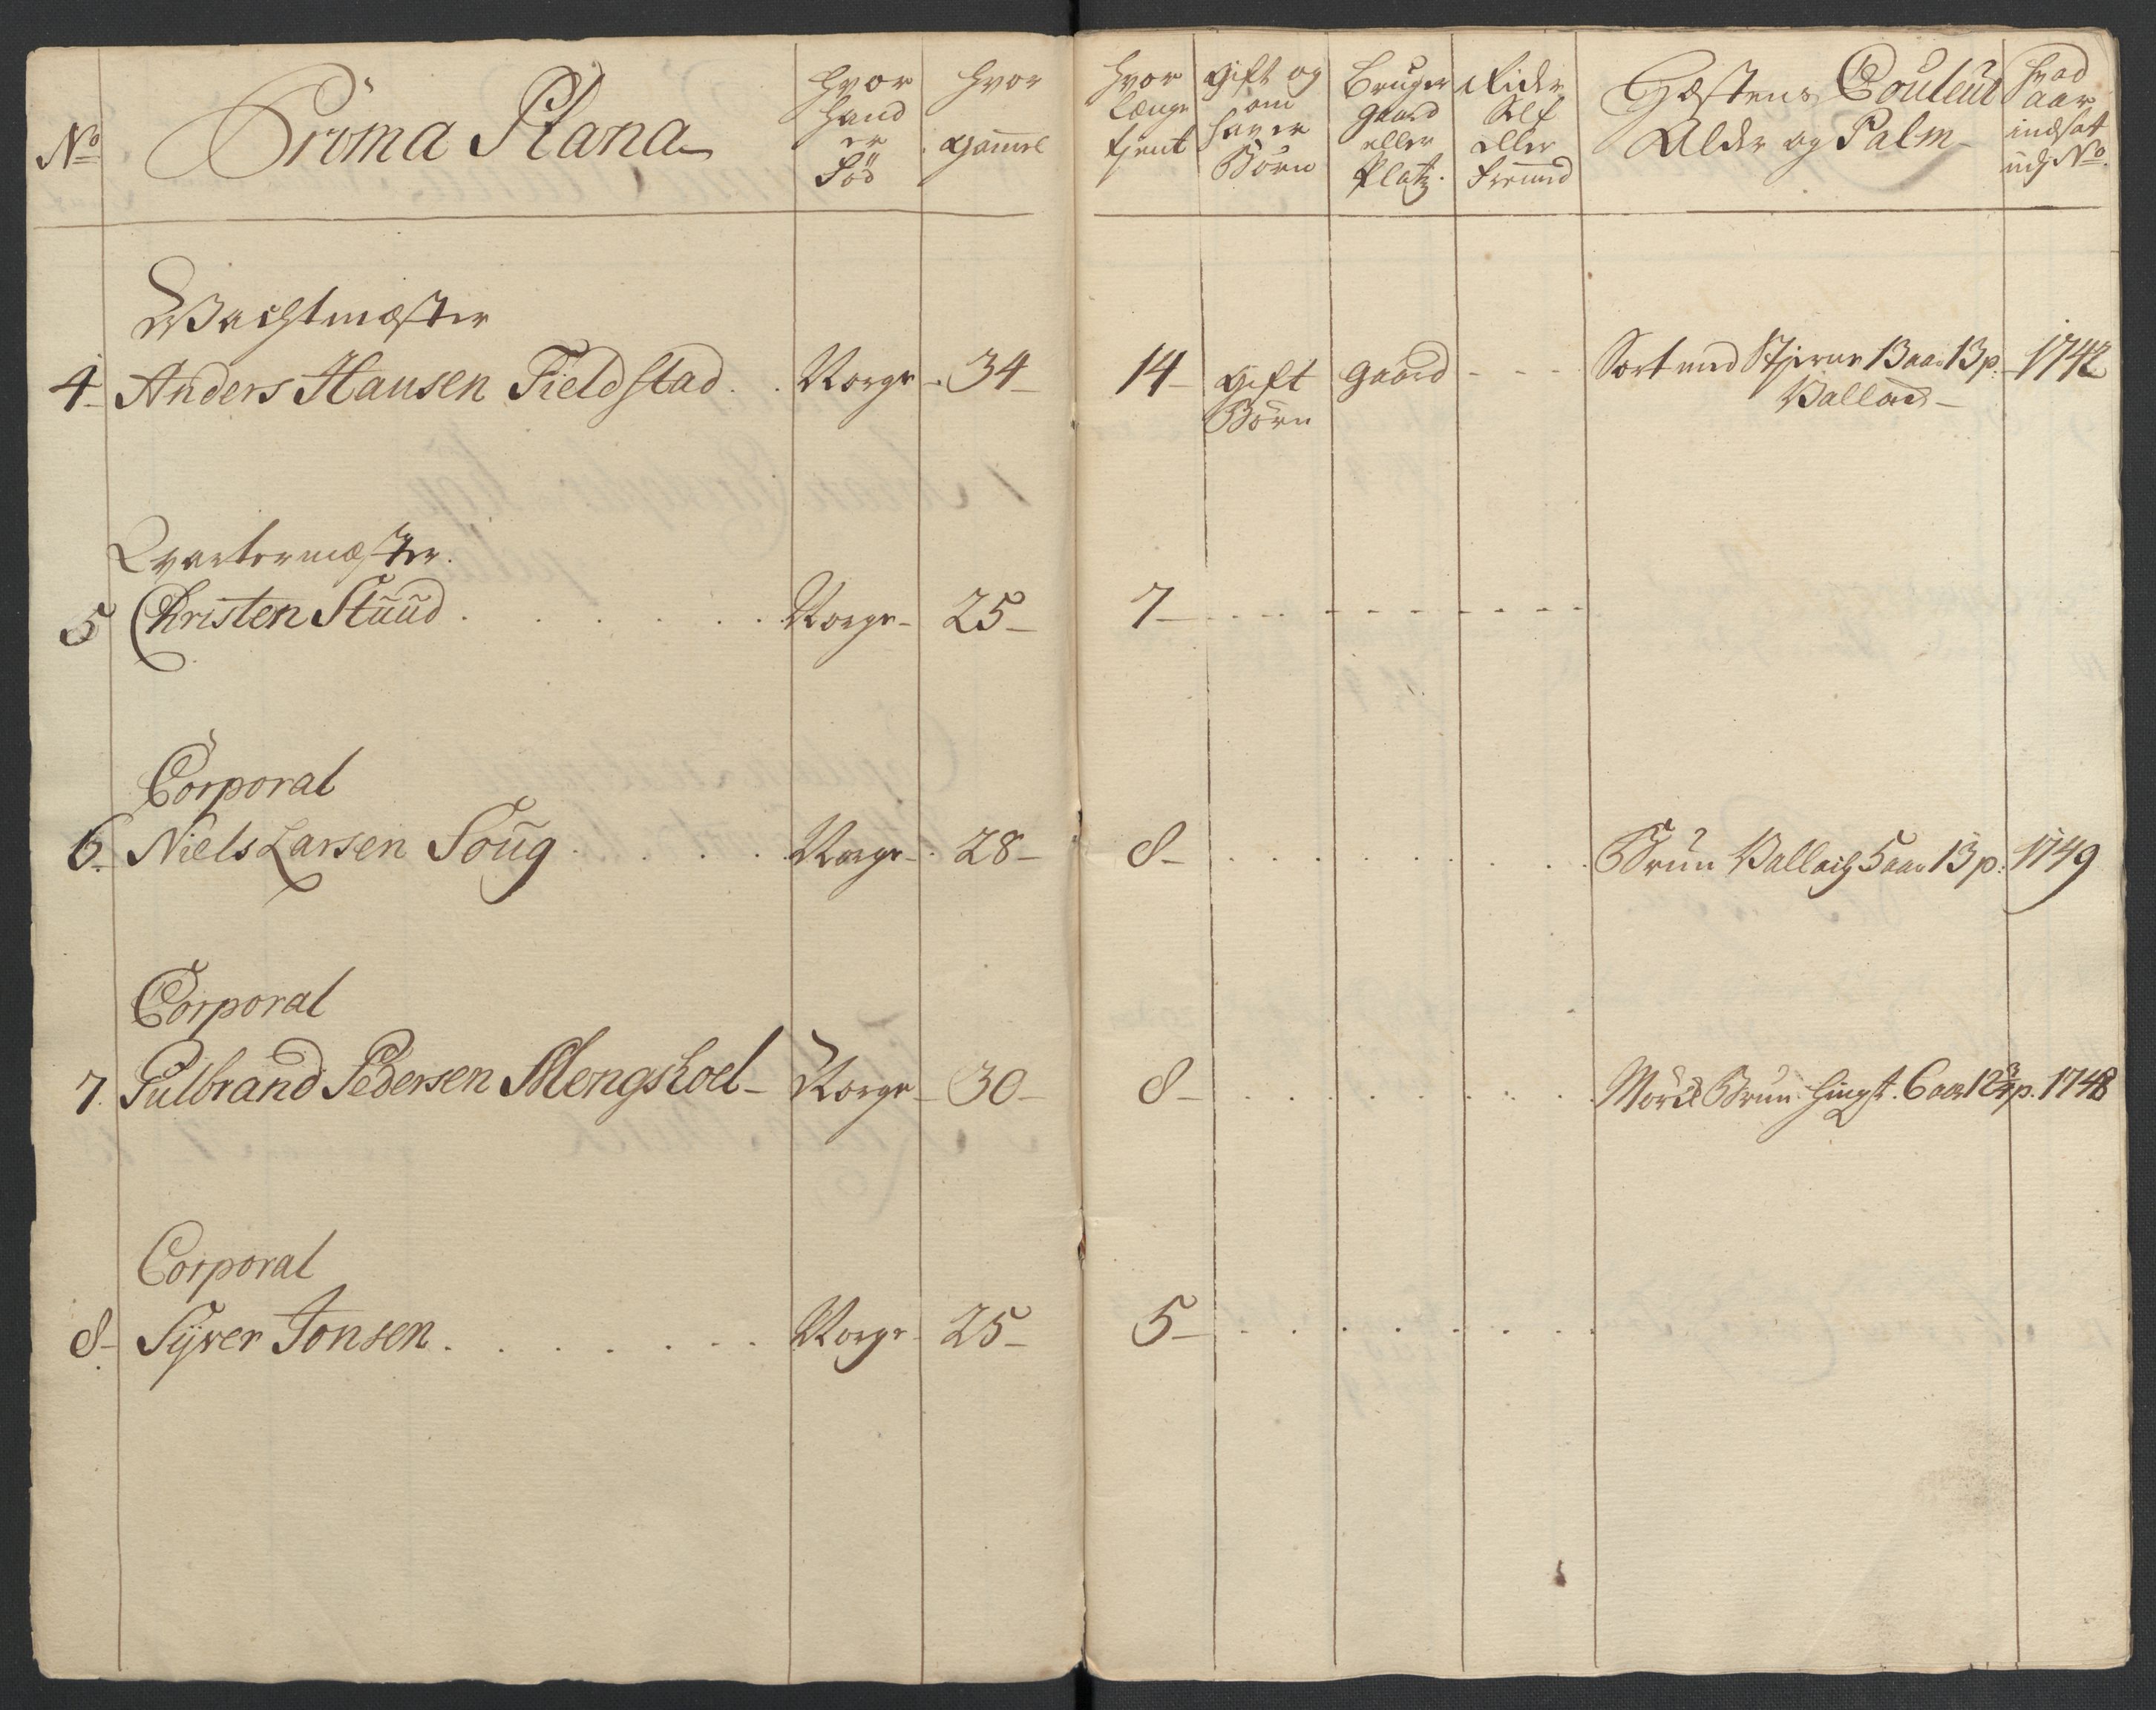 No Prima Plana hvor hand er Fød hvor gammel hvor længe tjent gift og om haver Børn Bruger gaard eller Platz. Rider Self eller fremmed Hæstens Couleur Alder og Palm hvad aar indsat udj No.
Wachtmæster
4 Anders Hansen Fieldstad . . Norge - 34 - 14 - gift Børn gaard - - - Sort med Stjerne 13 aar 13 p. 1742
Vallach -
Qvartermæster.
5 Christen Stuud . . . . . . Norge - 25 - 7 - - - - - - - -
Corporal
6. Niels Larsen Soug . . . . Norge - 28 - 8 - . . . . . . . . Brun Vallach 5 aar 13 p. 1749
Corporal
7. Gulbrand Pedersen Mengshoel - Norge - 30 - 8 - . . . . . . . . Mörk Brun hingst. 6 aar p. 1748
Corporal
8 - Syver Jonsen . . . . . . . Norge - 25 - 5 - . . . . . . . .